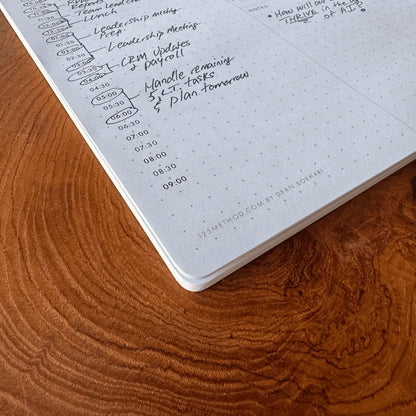 Team Lead
Lunch
01:30
Leadership meeting
Prep.
02:30
Leadership Meeting
03:30
CRM Updates
& payroll
04:30
05:00
Handle remaining
05:30
L.T. tasks
06:00
& Plan tomorrow
06:30
07:00
07:30
08:00
08:30
09:00
NOTES
How will our
THRIVE in the age
of A.I.?
125METHOD.COM BY DEAN BOKHARI